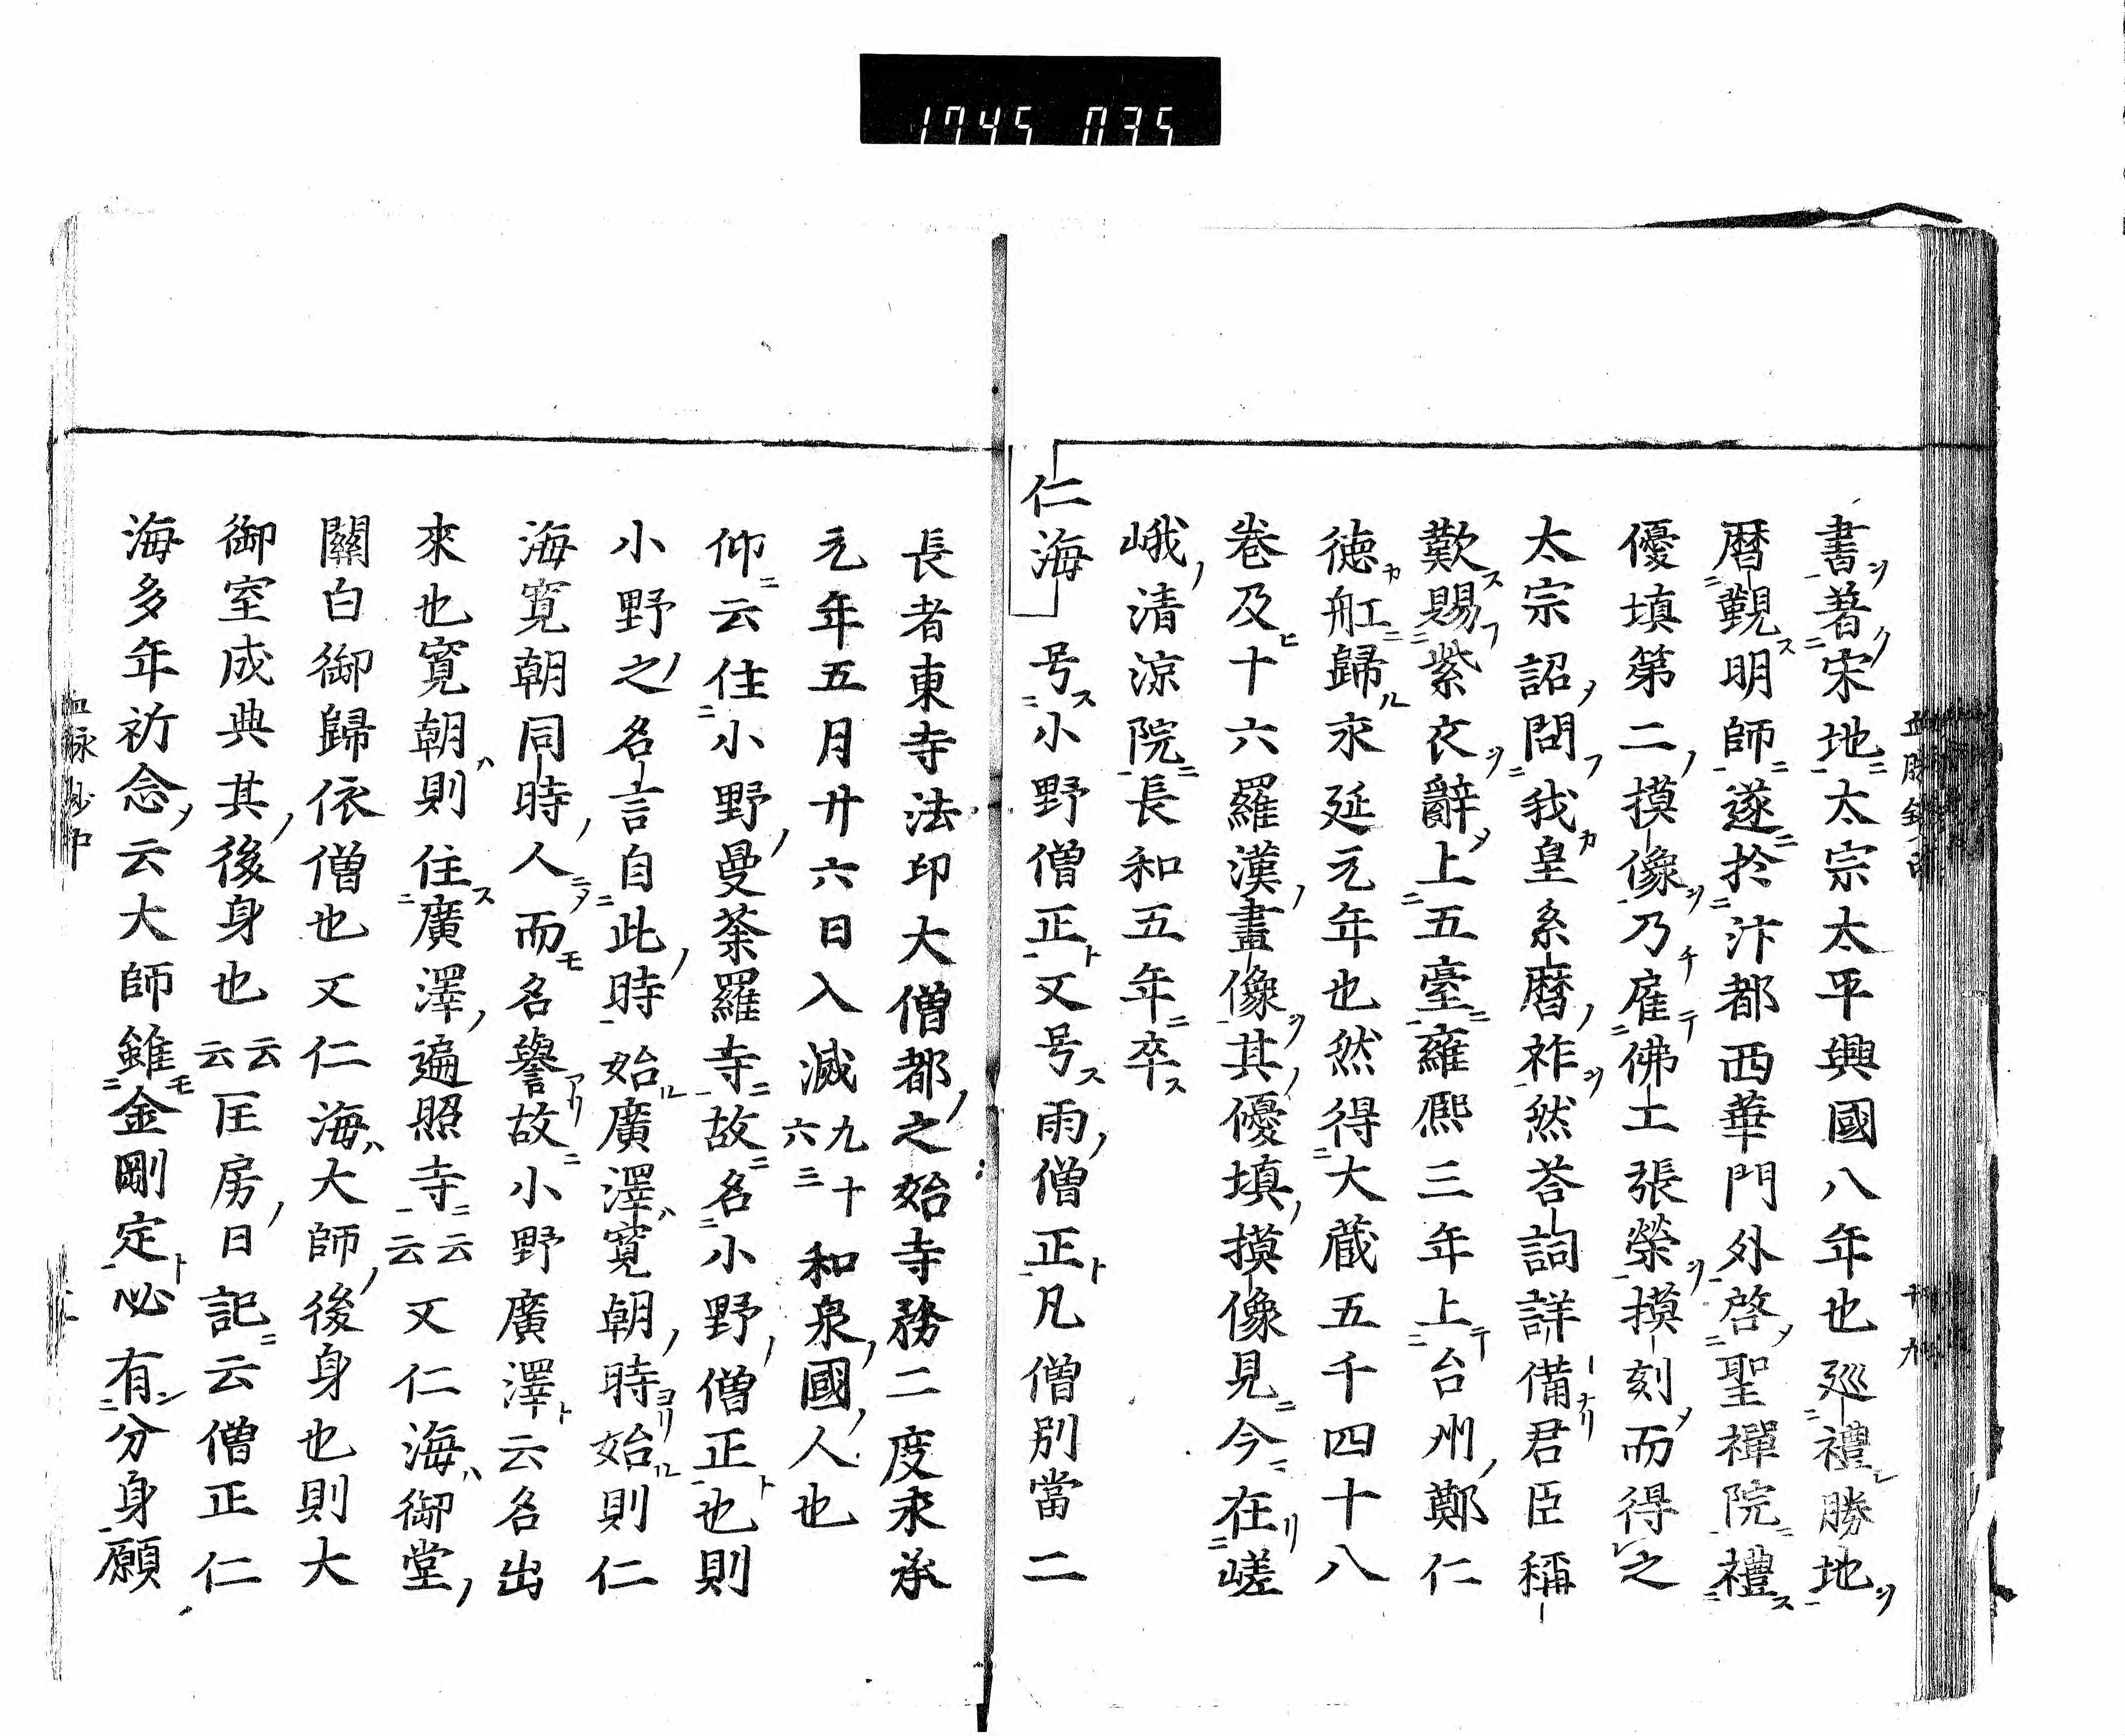 1745 035
書著宋地太宗太平興國八年也巡禮勝地
暦覲明師遂於汴都西華門外啓聖禪院禮
優填第二摸像乃雇佛工張榮摸刻而得之
太宗詔問我皇系暦祚然荅詞詳備君臣稱
歎賜紫衣辭上五臺雍熈三年上台州鄭仁
徳舡歸永延元年也然得大蔵五千四十八
巻及十六羅漢畫像其優填摸像見今在嵯
峨清涼院長和五年卒
仁海 号小野僧正又号雨僧正凡僧別當二
長者東寺法印大僧都之始寺務二度永承
元年五月廿六日入滅九十六三 和泉國人也
仰云住小野曼荼羅寺故名小野僧正也則
小野之名言自此時始廣澤寛朝時始則仁
海寛朝同時人而名譽故小野廣澤云名出
來也寛朝則住廣澤遍照寺云云又仁海御堂
關白御歸依僧也又仁海大師後身也則大
御室成典其後身也云云匡房日記云僧正仁
海多年祈念云大師雖金剛定必有分身願